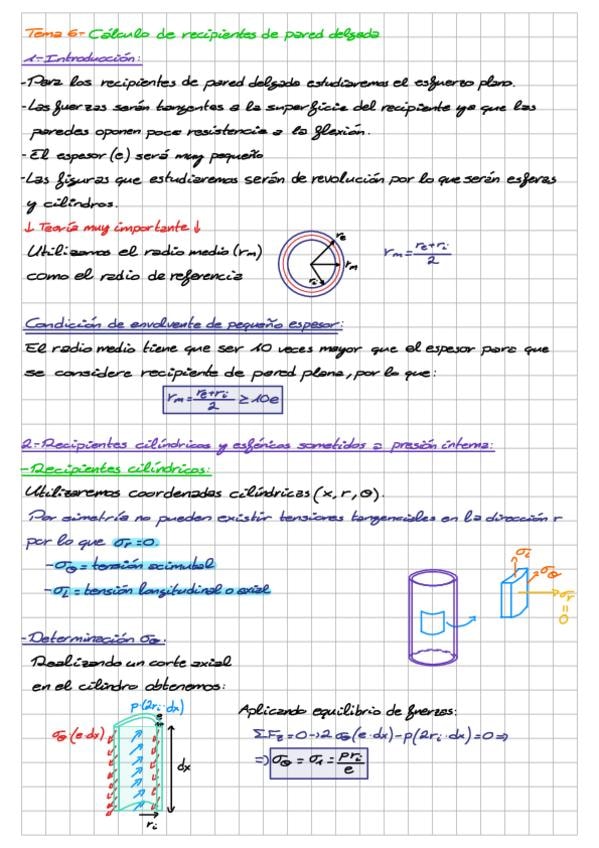 Tema 6- Cálculo de recipientes de pared delgada
1- Introducción:
-Para los recipientes de pared delgada estudiaremos el esfuerzo plano.
-Las fuerzas serán tangentes a la superficie del recipiente ya que las
paredes oponen poca resistencia a la flexión.
- El espesor (e) será muy pequeño
-Las figuras que estudiaremos serán de revolución por lo que serán esferas
y cilindros.
↓ Teoría muy importante ↓
Utilizamos el radio medio (rm)
como el radio de referencia
re
rm
ri
rm = (re+ri)/2
Condición de envolvente de pequeño espesor:
El radio medio tiene que ser 10 veces mayor que el espesor para que
se considere recipiente de pared plana, por lo que:
rm = (re+ri)/2 ≥ 10e
2-Recipientes cilíndricos y esféricos sometidos a presión interna:
-Recipientes cilíndricos:
Utilizaremos coordenadas cilíndricas (x, r, θ).
Por simetría no pueden existir tensiones tangenciales en la dirección r
por lo que σr = 0.
-σθ = tensión acimutal
-σL = tensión longitudinal o axial
σL
σθ
σr
=
0
-Determinación σθ:
Realizando un corte axial
en el cilindro obtenemos:
p·(2ri·dx)
e
σθ(e·dx)
dx
ri
Aplicando equilibrio de fuerzas:
ΣFz = 0 → 2σθ(e·dx) - p(2ri·dx) = 0 ⇒
⇒ σθ = σ1 = pri/e